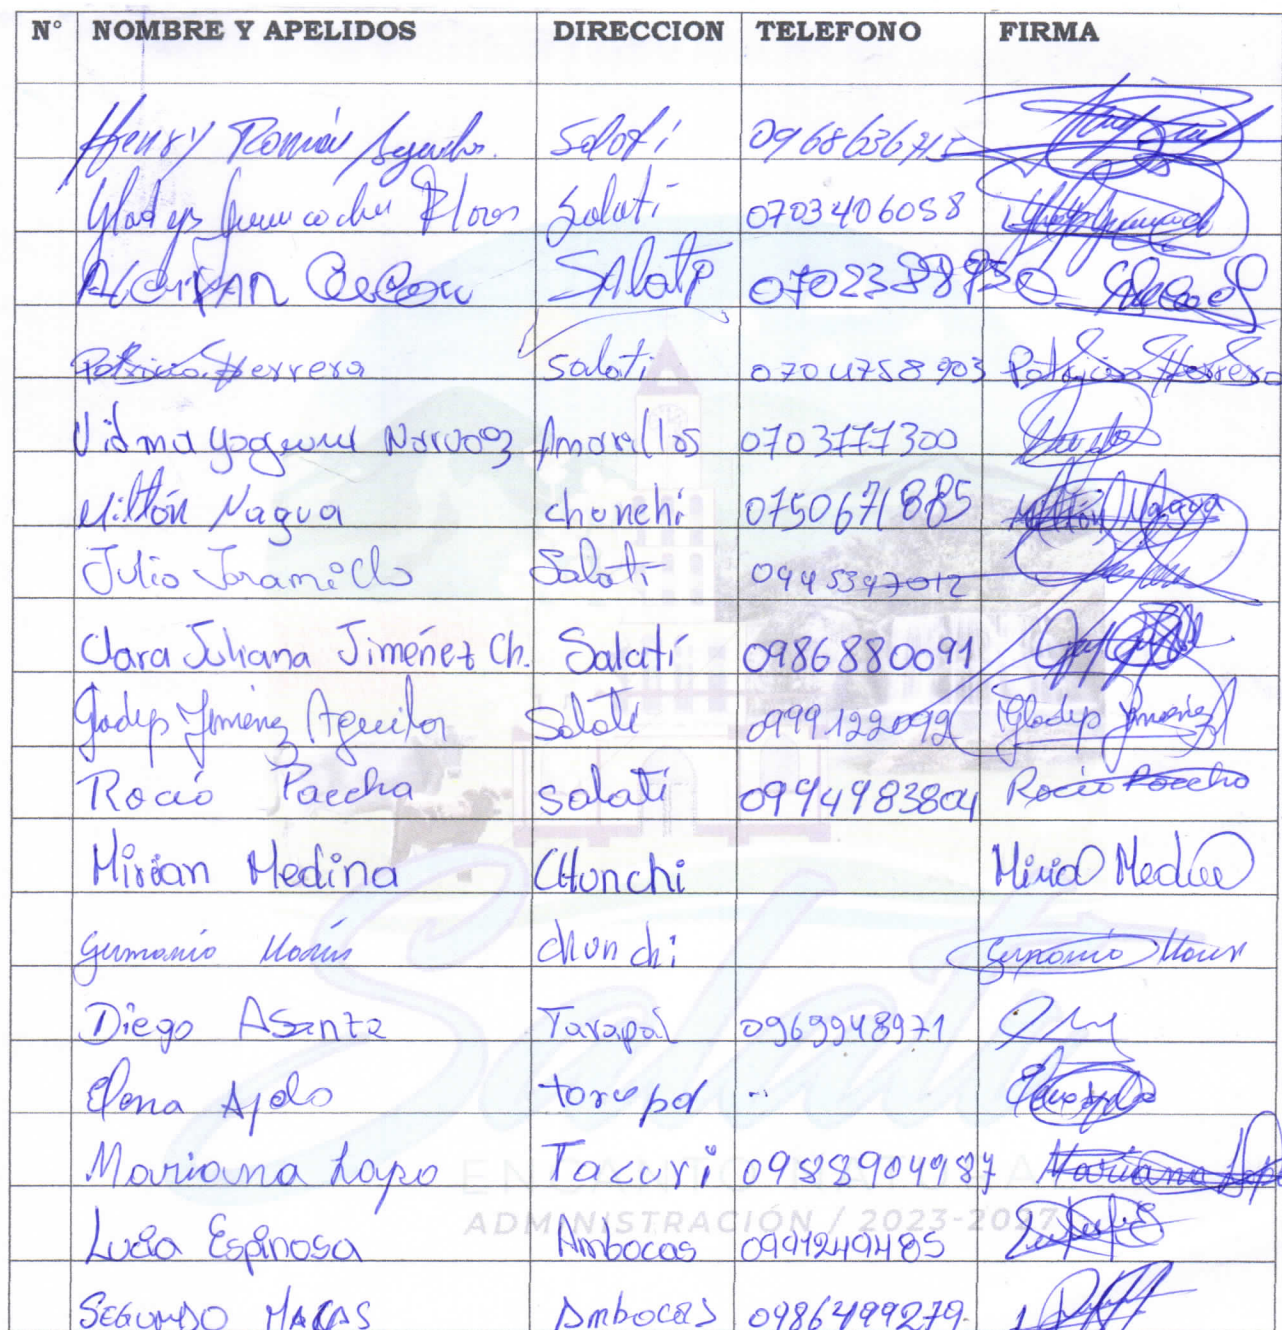 N° NOMBRE Y APELIDOS DIRECCION TELEFONO FIRMA
Henry Román Salatí 0968636715
Gladys Flores Salatí 0703406058
Salatí
Patricio Herrera Salati 0704758903 Patricio Herrera
Vidma Narvaez Amarillos 0703177300
Miltón Nagua chonchi 0750671885 Miltón Nagua
Julio Jaramillo Salatí 0945397012
Clara Juliana Jiménez Ch. Salatí 0986880091
Gladys Jimenez Aguilar Salatí 0999122092 Gladys Jimenez
Rocio Paccha Salati 0994983804 Rocio Paccha
Mirian Medina CHonchi
chonchi
Diego Asanza Tarapal 0969948971
Elena torapal ..
Mariana Lapo Tacuri 0988904987 Mariana Lapo
Lucia Espinosa Ambocas 0991249485
SEGUNDO MACAS Ambocas 0986499279
Salatí
ADMINISTRACIÓN / 2023-2027